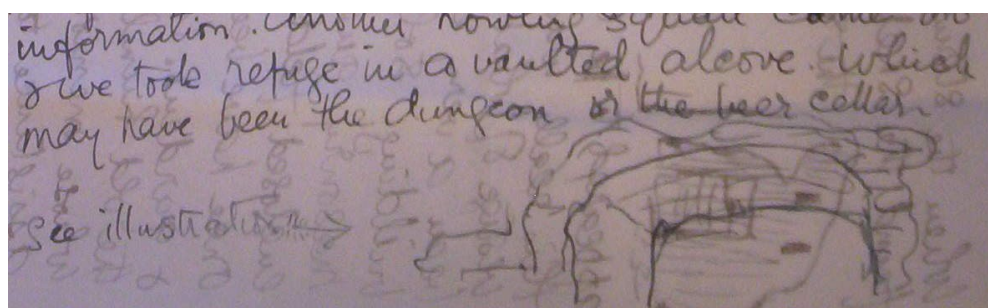 information. Another howling squall came on
& we took refuge in a vaulted alcove. which
may have been the dungeon or the beer cellar.
See illustration